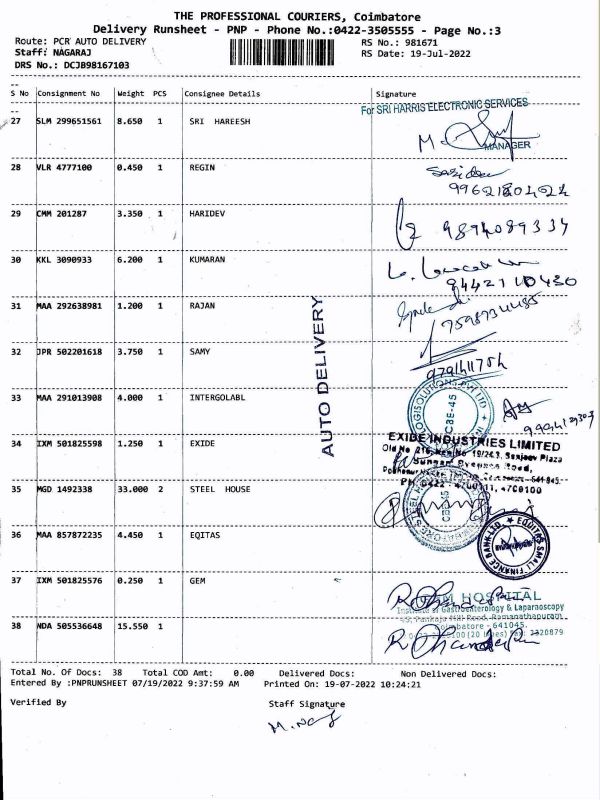 THE PROFESSIONAL COURIERS, Coimbatore
Delivery Runsheet - PNP - Phone No.:0422-3505555 - Page No.:3
Route: PCR AUTO DELIVERY RS No.: 981671
Staff: NAGARAJ RS Date: 19-Jul-2022
DRS No.: DCJB98167103
S No Consignment No Weight PCS Consignee Details Signature
For SRI HARRIS ELECTRONIC SERVICES
27 SLM 299651561 8.650 1 SRI HAREESH
MANAGER
28 VLR 4777100 0.450 1 REGIN
29 CMM 201287 3.350 1 HARIDEV
9894089334
30 KKL 3090933 6.200 1 KUMARAN
31 MAA 292638981 1.200 1 RAJAN
32 JPR 502201618 3.750 1 SAMY
AUTO DELIVERY
33 MAA 291013908 4.000 1 INTERGOLABL
CBE-45
EXIDE INDUSTRIES LIMITED
34 IXM 501825598 1.250 1 EXIDE
35 MGD 1492338 33.000 2 STEEL HOUSE
36 MAA 857872235 4.450 1 EQITAS
EQUITAS SMALL FINANCE BANK LTD
37 IXM 501825576 0.250 1 GEM
HOSPITAL
Institute of Gastroenterology & Laparoscopy
Coimbatore - 641045.
38 NDA 505536648 15.550 1
Total No. Of Docs: 38 Total COD Amt: 0.00 Delivered Docs: Non Delivered Docs:
Entered By :PNPRUNSHEET 07/19/2022 9:37:59 AM Printed On: 19-07-2022 10:24:21
Verified By Staff Signature